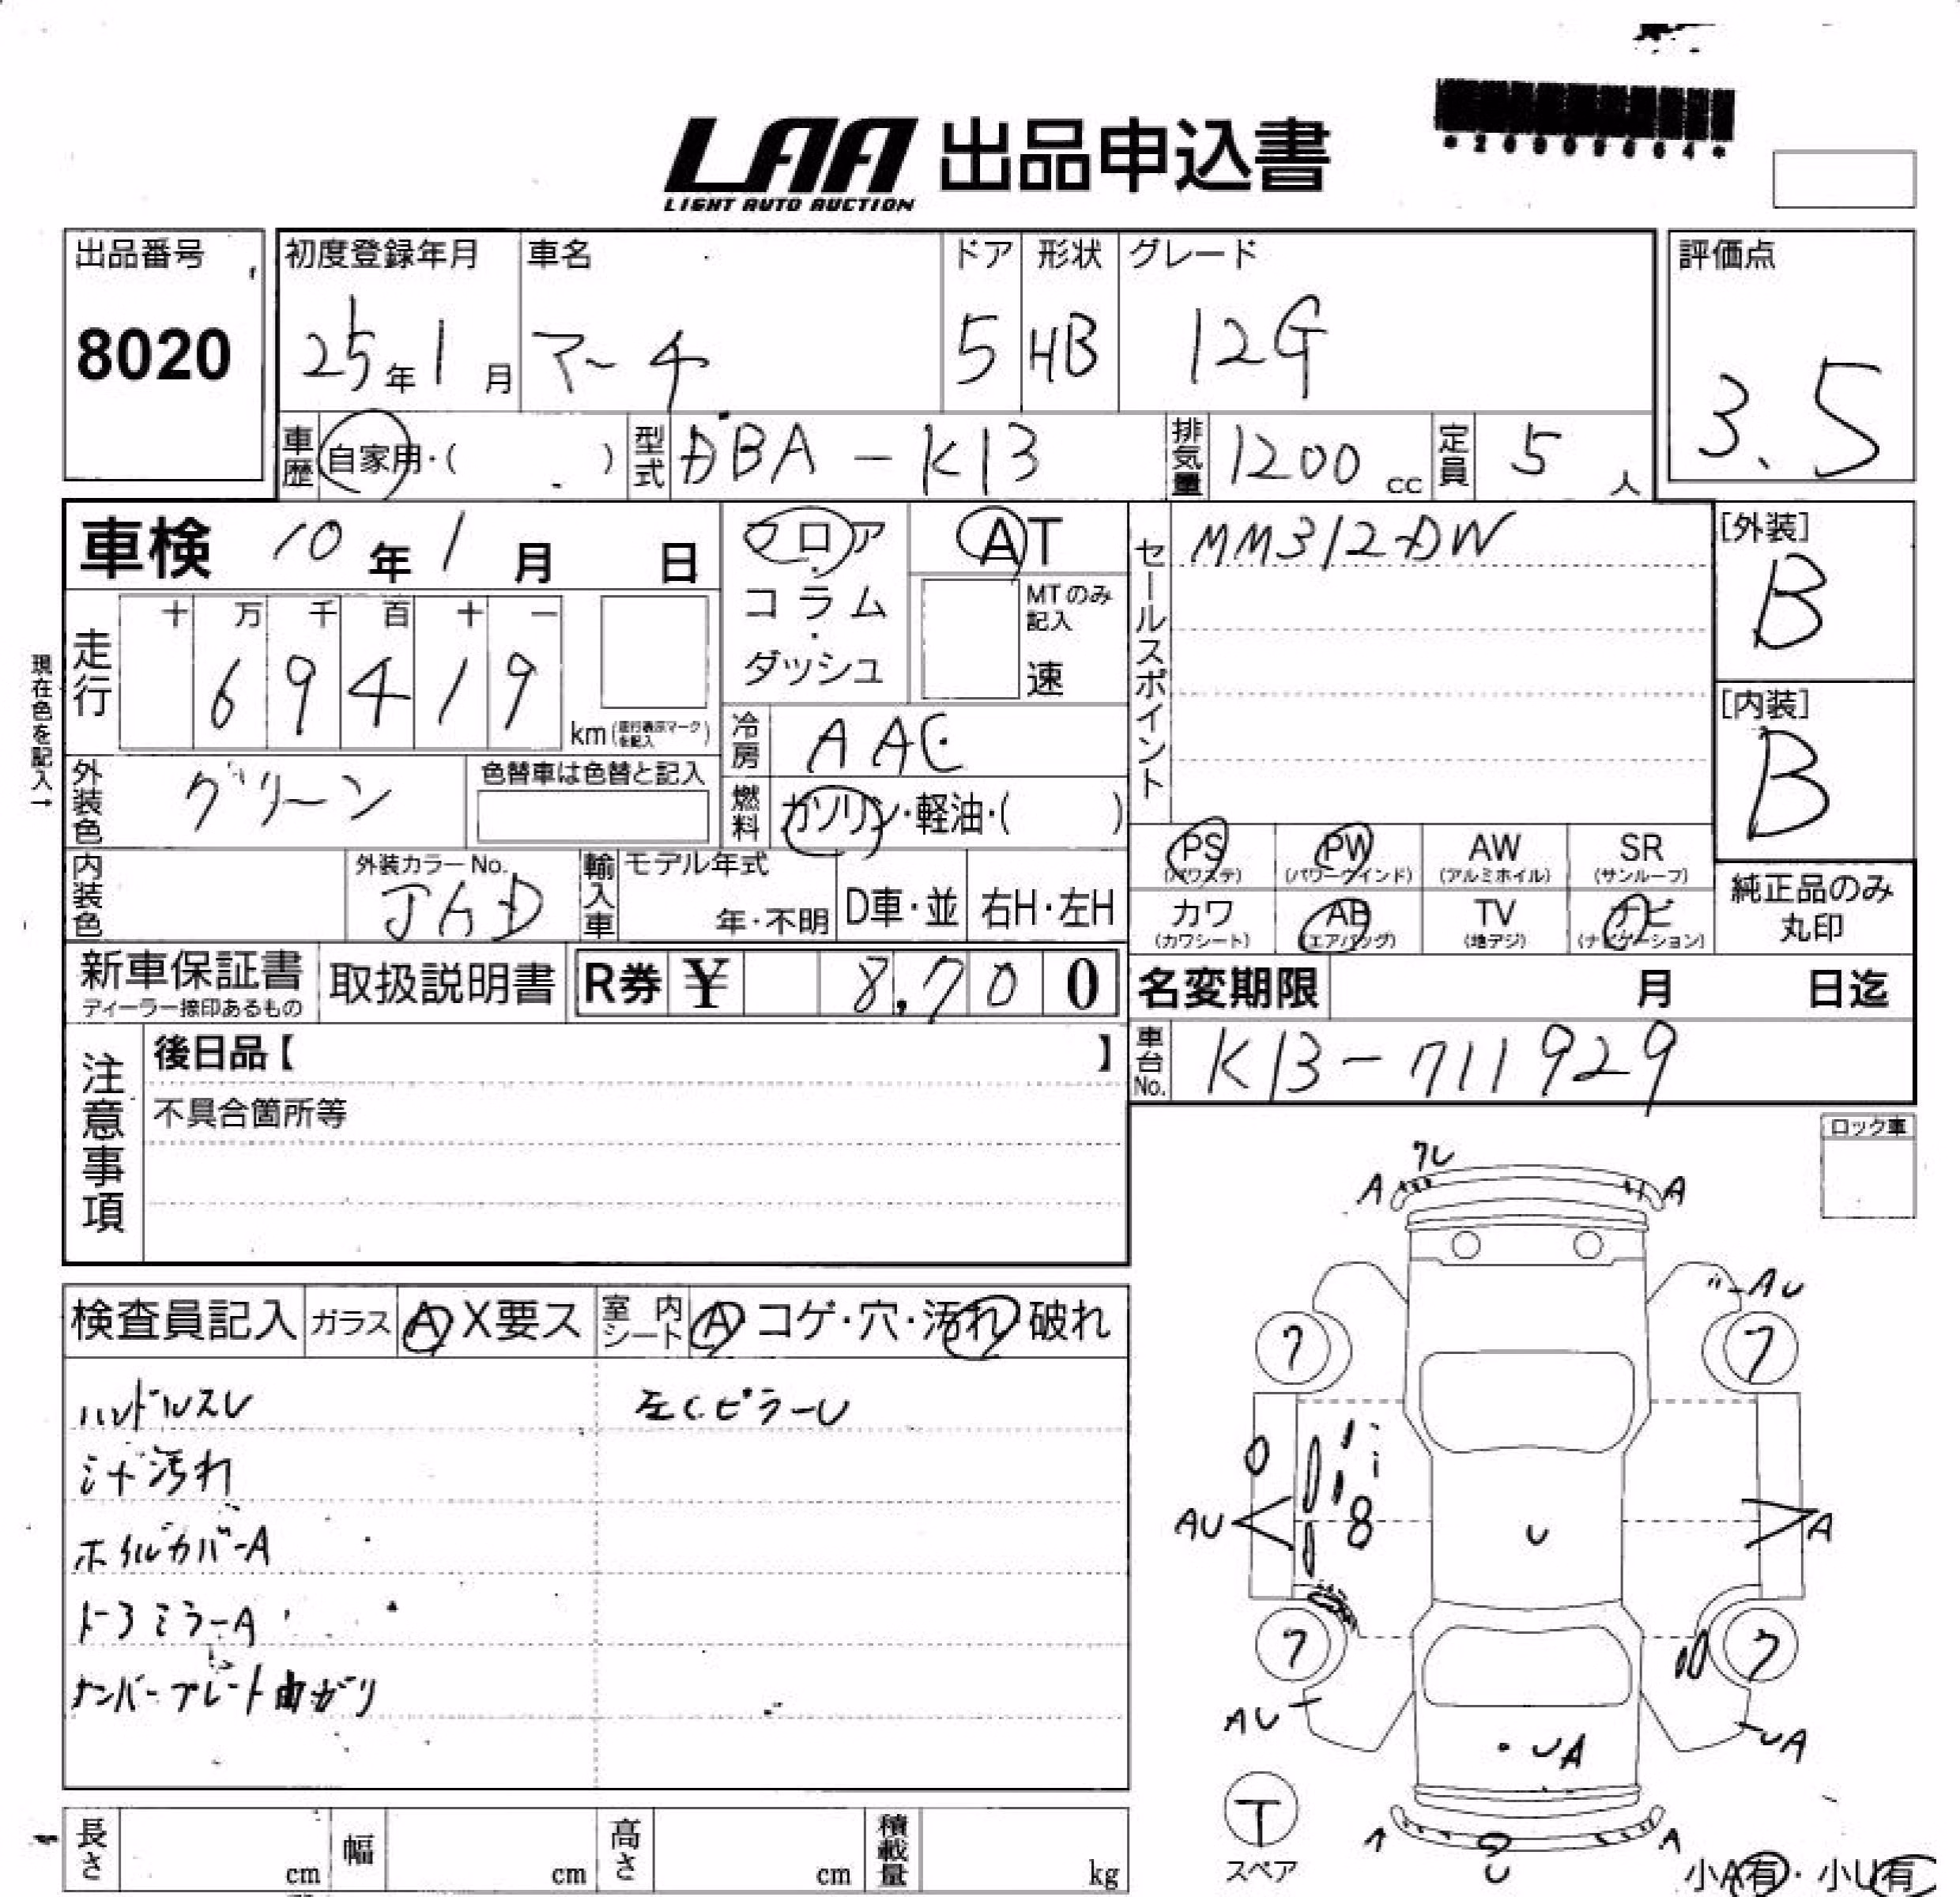 LAA 出品申込書
LIGHT AUTO AUCTION
出品番号
8020
初度登録年月
25年1月
車名
マーチ
ドア
5
形状
HB
グレード
12G
評価点
3.5
車歴
自家用・( )
型式
DBA-K13
排気量
1200cc
定員
5人
車検 10年1月 日
フロア・コラム・ダッシュ
AT
MTのみ記入
速
セールスポイント
MM312-DW
[外装]
B
[内装]
B
現在色を記入→
走行
十 万 千 百 十 一
6 9 4 1 9
km(走行表示マークを記入)
冷房
AAC
外装色
グリーン
色替車は色替と記入
燃料
ガソリン・軽油・( )
内装色
外装カラーNo.
JAD
輸入車
モデル年式
年・不明
D車・並
右H・左H
PS
(パワステ)
PW
(パワーウインド)
AW
(アルミホイル)
SR
(サンルーフ)
カワ
(カワシート)
AB
(エアバッグ)
TV
(地デジ)
ナビ
(ナビゲーション)
純正品のみ
丸印
新車保証書
ディーラー捺印あるもの
取扱説明書
R券 ¥ 8,700
名変期限 月 日迄
車台No.
K13-711929
注意事項
後日品【 】
不具合箇所等
ロック車
検査員記入
ガラス
A X要ス
室内シート
A コゲ・穴・汚れ 破れ
ハンドルスレ
シート汚れ
ホイルカバーA
ドアミラーA
ナンバープレート曲がり
左CピラーU
A
A
AU
7
7
AU
U
A
7
7
AU
UA
UA
T
スペア
A
U
小A有・小U有
長さ
cm
幅
cm
高さ
cm
積載量
kg